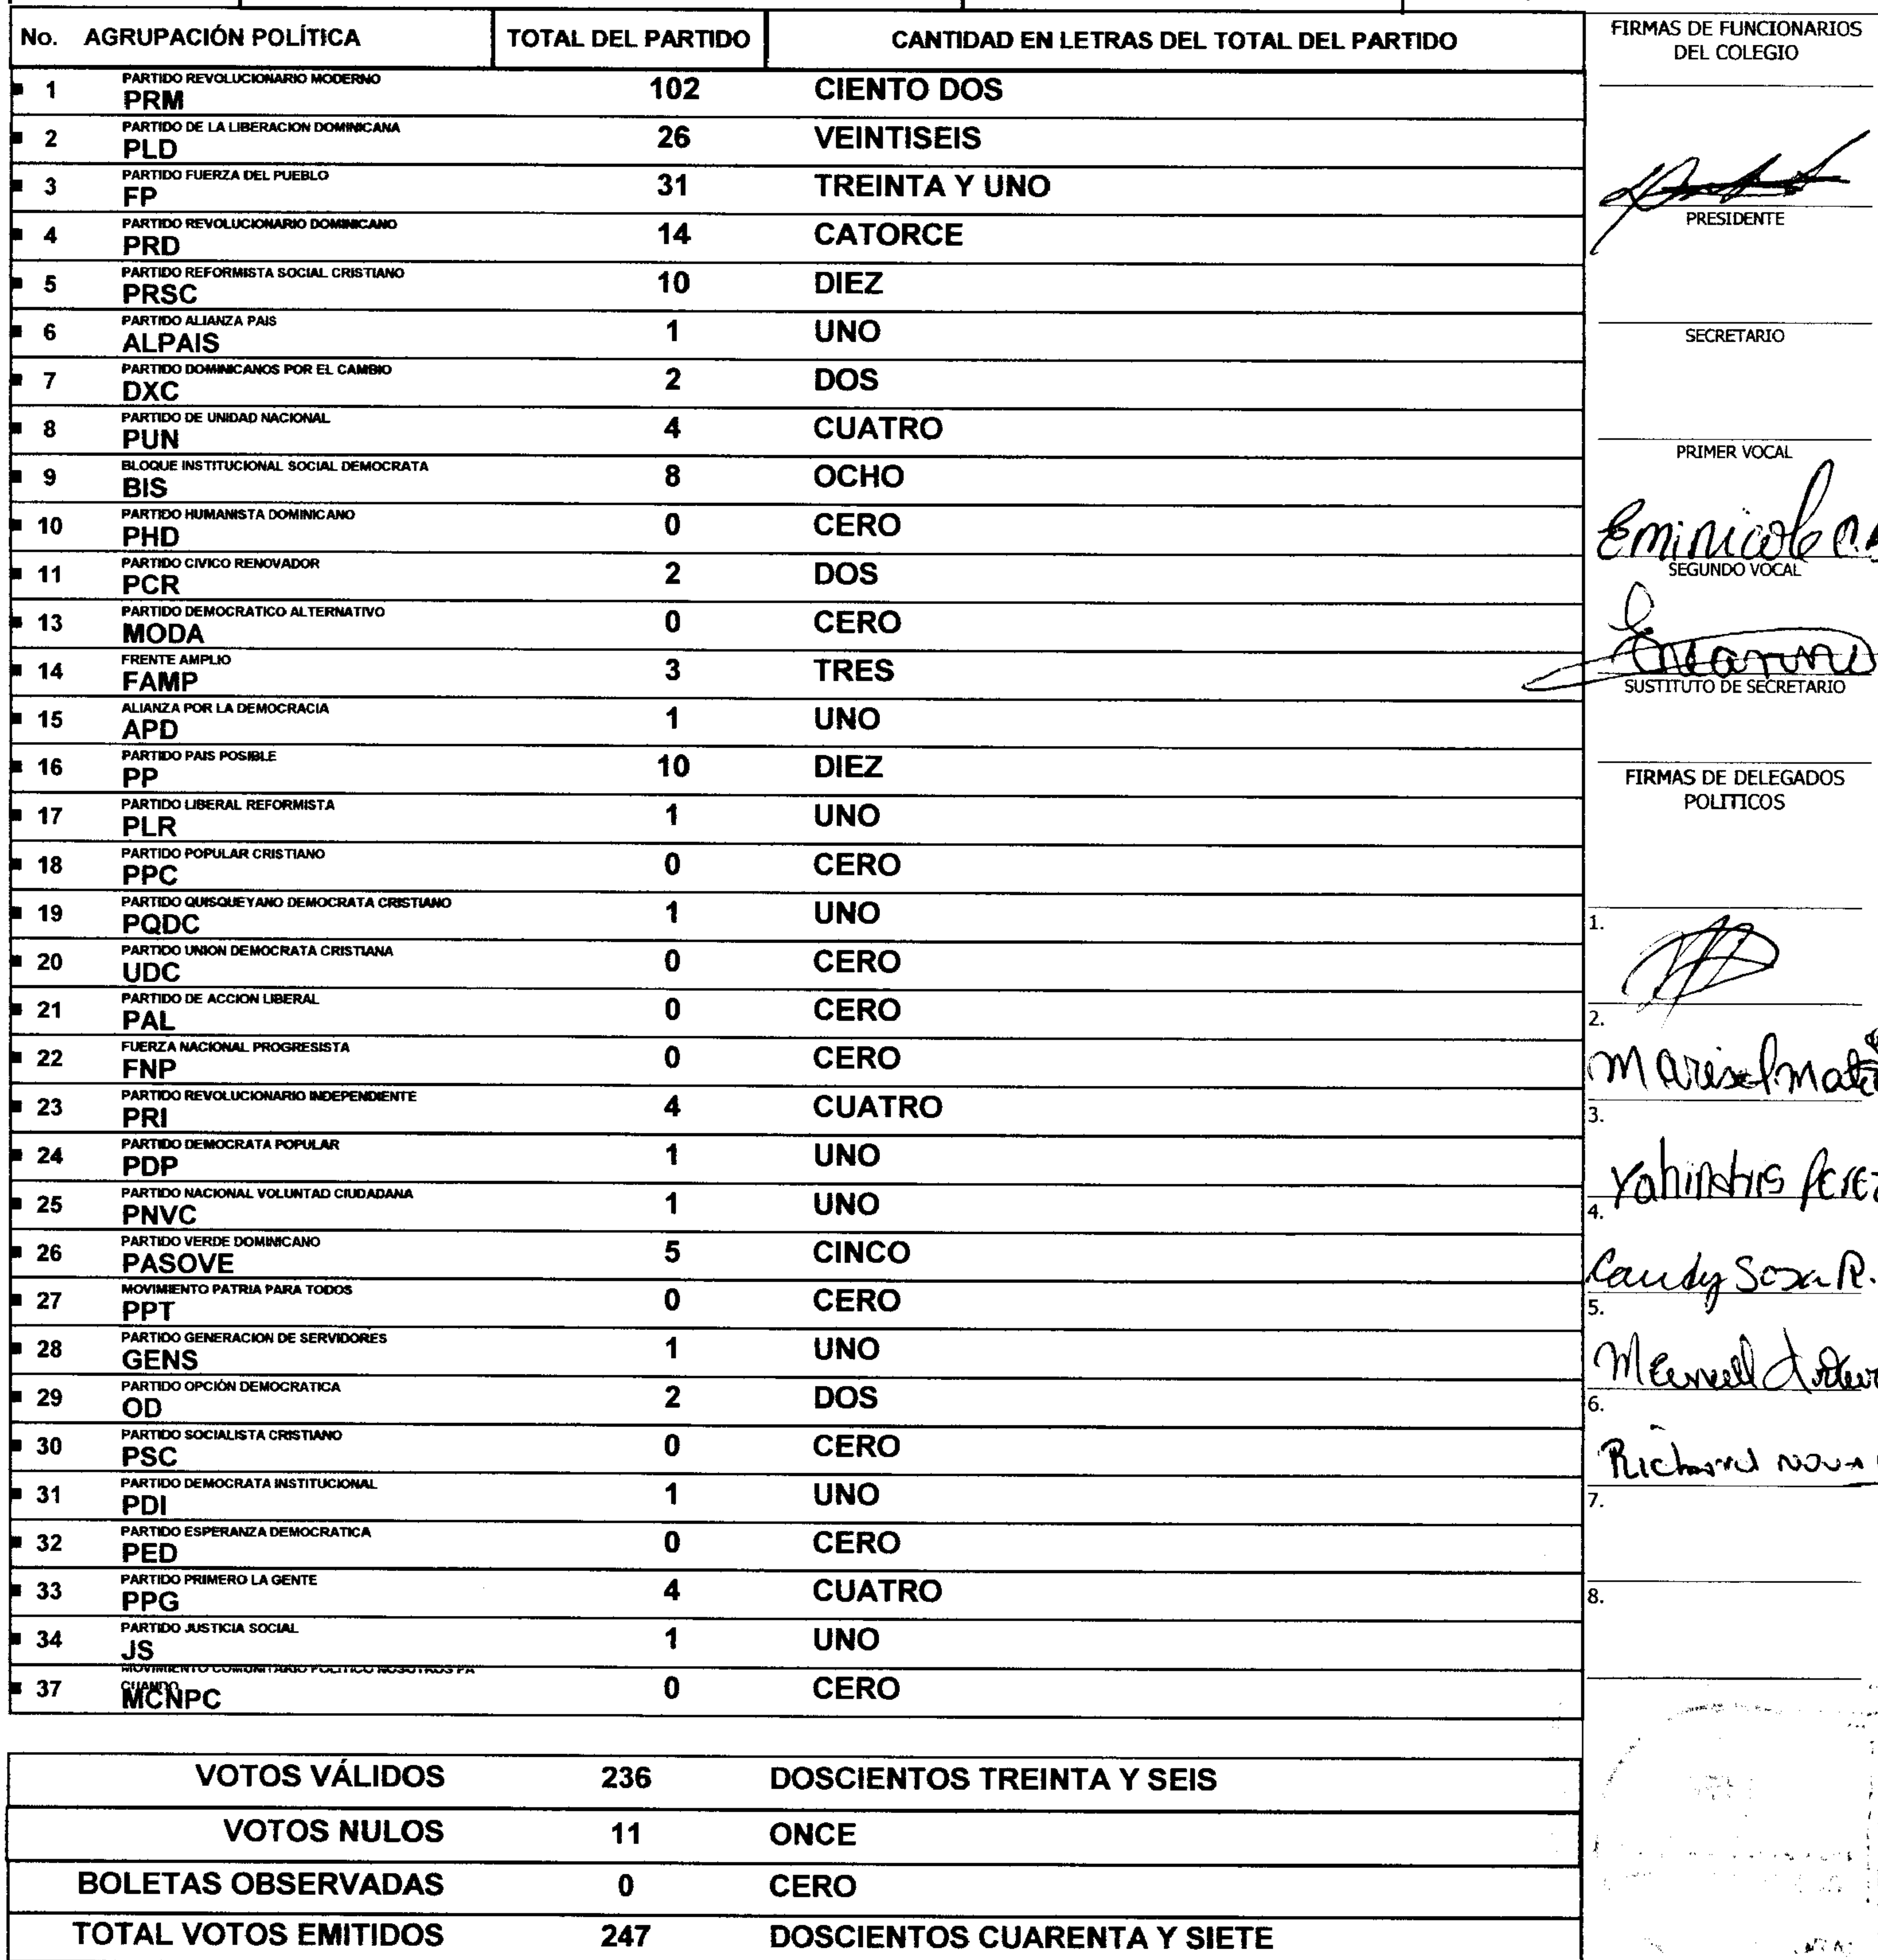 No. AGRUPACIÓN POLÍTICA TOTAL DEL PARTIDO CANTIDAD EN LETRAS DEL TOTAL DEL PARTIDO
PARTIDO REVOLUCIONARIO MODERNO
1 PRM 102 CIENTO DOS
PARTIDO DE LA LIBERACION DOMINICANA
2 PLD 26 VEINTISEIS
PARTIDO FUERZA DEL PUEBLO
3 FP 31 TREINTA Y UNO
PARTIDO REVOLUCIONARIO DOMINICANO
4 PRD 14 CATORCE
PARTIDO REFORMISTA SOCIAL CRISTIANO
5 PRSC 10 DIEZ
PARTIDO ALIANZA PAIS
6 ALPAIS 1 UNO
PARTIDO DOMINICANOS POR EL CAMBIO
7 DXC 2 DOS
PARTIDO DE UNIDAD NACIONAL
8 PUN 4 CUATRO
BLOQUE INSTITUCIONAL SOCIAL DEMOCRATA
9 BIS 8 OCHO
PARTIDO HUMANISTA DOMINICANO
10 PHD 0 CERO
PARTIDO CIVICO RENOVADOR
11 PCR 2 DOS
PARTIDO DEMOCRATICO ALTERNATIVO
13 MODA 0 CERO
FRENTE AMPLIO
14 FAMP 3 TRES
ALIANZA POR LA DEMOCRACIA
15 APD 1 UNO
PARTIDO PAIS POSIBLE
16 PP 10 DIEZ
PARTIDO LIBERAL REFORMISTA
17 PLR 1 UNO
PARTIDO POPULAR CRISTIANO
18 PPC 0 CERO
PARTIDO QUISQUEYANO DEMOCRATA CRISTIANO
19 PQDC 1 UNO
PARTIDO UNION DEMOCRATA CRISTIANA
20 UDC 0 CERO
PARTIDO DE ACCION LIBERAL
21 PAL 0 CERO
FUERZA NACIONAL PROGRESISTA
22 FNP 0 CERO
PARTIDO REVOLUCIONARIO INDEPENDIENTE
23 PRI 4 CUATRO
PARTIDO DEMOCRATA POPULAR
24 PDP 1 UNO
PARTIDO NACIONAL VOLUNTAD CIUDADANA
25 PNVC 1 UNO
PARTIDO VERDE DOMINICANO
26 PASOVE 5 CINCO
MOVIMIENTO PATRIA PARA TODOS
27 PPT 0 CERO
PARTIDO GENERACION DE SERVIDORES
28 GENS 1 UNO
PARTIDO OPCIÓN DEMOCRATICA
29 OD 2 DOS
PARTIDO SOCIALISTA CRISTIANO
30 PSC 0 CERO
PARTIDO DEMOCRATA INSTITUCIONAL
31 PDI 1 UNO
PARTIDO ESPERANZA DEMOCRATICA
32 PED 0 CERO
PARTIDO PRIMERO LA GENTE
33 PPG 4 CUATRO
PARTIDO JUSTICIA SOCIAL
34 JS 1 UNO
MOVIMIENTO COMUNITARIO POLITICO NOSOTROS PA
CUANDO
37 MCNPC 0 CERO
VOTOS VÁLIDOS 236 DOSCIENTOS TREINTA Y SEIS
VOTOS NULOS 11 ONCE
BOLETAS OBSERVADAS 0 CERO
TOTAL VOTOS EMITIDOS 247 DOSCIENTOS CUARENTA Y SIETE
FIRMAS DE FUNCIONARIOS
DEL COLEGIO
PRESIDENTE
SECRETARIO
PRIMER VOCAL
Eminicole
SEGUNDO VOCAL
SUSTITUTO DE SECRETARIO
FIRMAS DE DELEGADOS
POLITICOS
1.
2.
3.
Perez
4.
Candy Sosa R.
5.
6.
Richard Nova
7.
8.